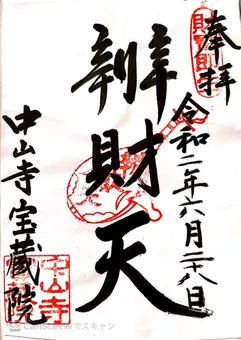 奉拝
令和二年六月二十八日
辨財天
中山寺宝蔵院
中山寺
CamScannerでスキャン